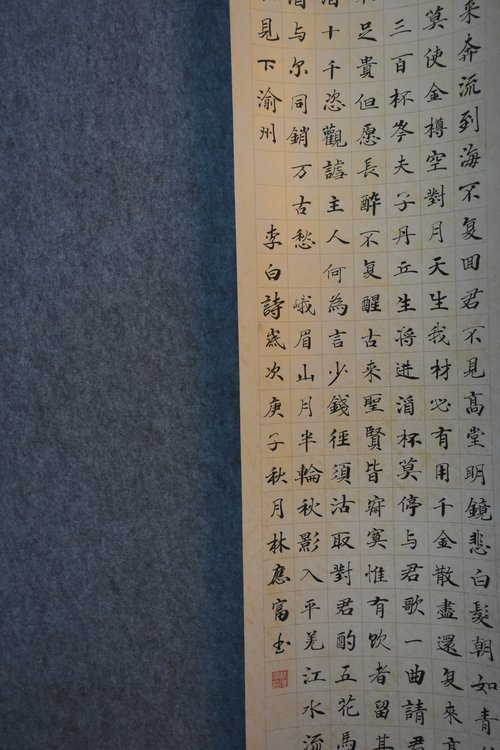 来奔流到海不复回君不見高堂明鏡悲白髮朝如青
莫使金樽空對月天生我材必有用千金散盡還复来
三百杯岑夫子丹丘生将进酒杯莫停与君歌一曲請君
足貴但愿長醉不复醒古来聖賢皆寂寞惟有饮者留其
酒十千恣觀謔主人何為言少錢徑須沽取對君酌五花馬
酒与尔同銷万古愁 峨眉山月半輪秋影入平羌江水流
見下渝州 李白詩歲次庚子秋月林應富书